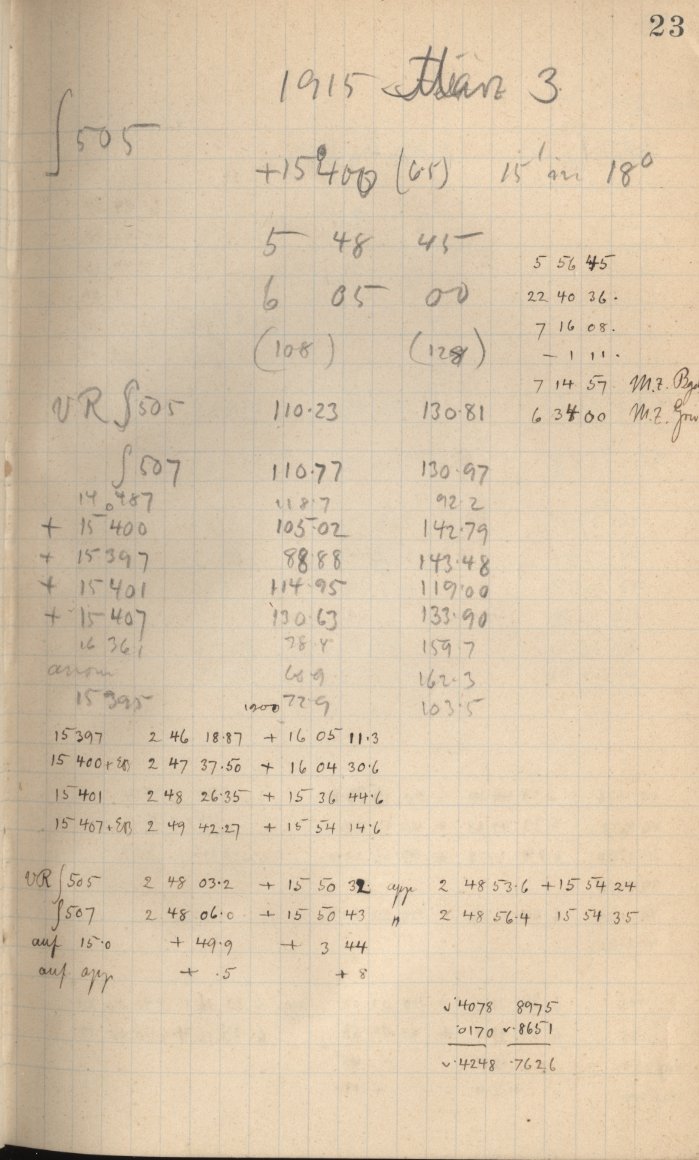 23
1915 März 3
∫505
+15°400 (65) 15' in 18°
5 48 45
5 56 45
6 05 00
22 40 36.
7 16 08.
(108) (128)
- 1 11.
7 14 57. M.Z.
VR ∫505 110.23 130.81
6 34 00 M.Z.
∫507 110.77 130.97
14°487 118.7 92.2
+ 15 400 105.02 142.79
+ 15 397 88.88 143.48
+ 15 401 114.95 119.00
+ 15 407 130.63 133.90
16 361 78.4 159.7
anon 68.9 162.3
15 395 72.9 103.5
1900
15 397 2 46 18.87 + 16 05 11.3
15 400 + EB 2 47 37.50 + 16 04 30.6
15 401 2 48 26.35 + 15 36 44.6
15 407 + EB 2 49 42.27 + 15 54 14.6
VR ∫505 2 48 03.2 + 15 50 32 app 2 48 53.6 +15 54 24
∫507 2 48 06.0 + 15 50 43 " 2 48 56.4 15 54 35
auf 15.0 + 49.9 + 3 44
auf app + .5 + 8
.4078 8975
.0170 .8651
.4248 .7626